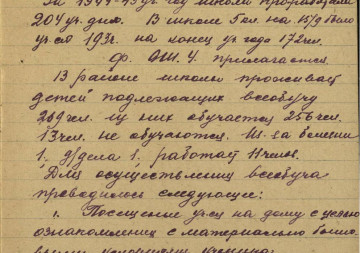 За 1944-45 уч. год школа проработала
204 уч. дня. В школе 5 кл. на 15/9 было
уч-ся 193 ч. на конец уч. года 172 чел.
ф. № 4. прилагается.
В районе школы проживает
детей подлежащих всеобучу
269 чел. из них обучается 256 чел.
13 чел. не обучаются. Из-за болезни
1. работает 11 челов.
Для осуществления всеобуча
проводилось следующее:
1. Посещение уч-ся на дому с целью
ознакомления с материально бытов
условиями ученика: